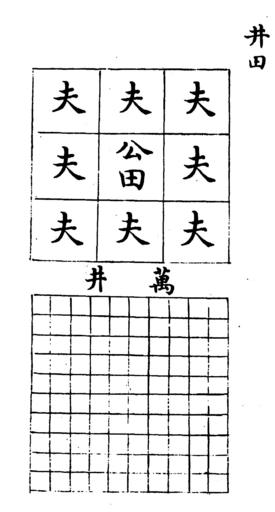 井田
夫 夫 夫
夫 公田 夫
夫 夫 夫
萬井